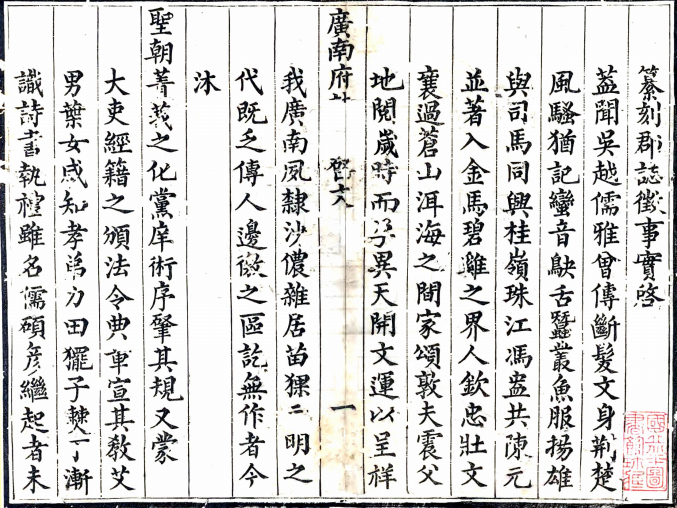 纂刻郡誌徵事實啓
葢聞吳越儒雅曾傳斷髮文身荆楚
風騷猶記蠻音鴃舌蠶叢魚服揚雄
與司馬同興桂嶺珠江馮盎共陳元
並著入金馬碧雞之界人欽忠壯文
襄過蒼山洱海之間家頌敦夫震父
地閱歲時而異天開文運以呈祥
廣南府
一
我廣南夙隸沙儂雜居苗猓二明之
代既乏傳人邊徼之區訖無作者今
沐
聖朝菁莪之化黨庠術序肇其規又蒙
大吏經籍之頒法令典章宣其敎艾
男葉女咸知孝弟力田擺子僰丁漸
識詩書執禮雖名儒碩彦繼起者未